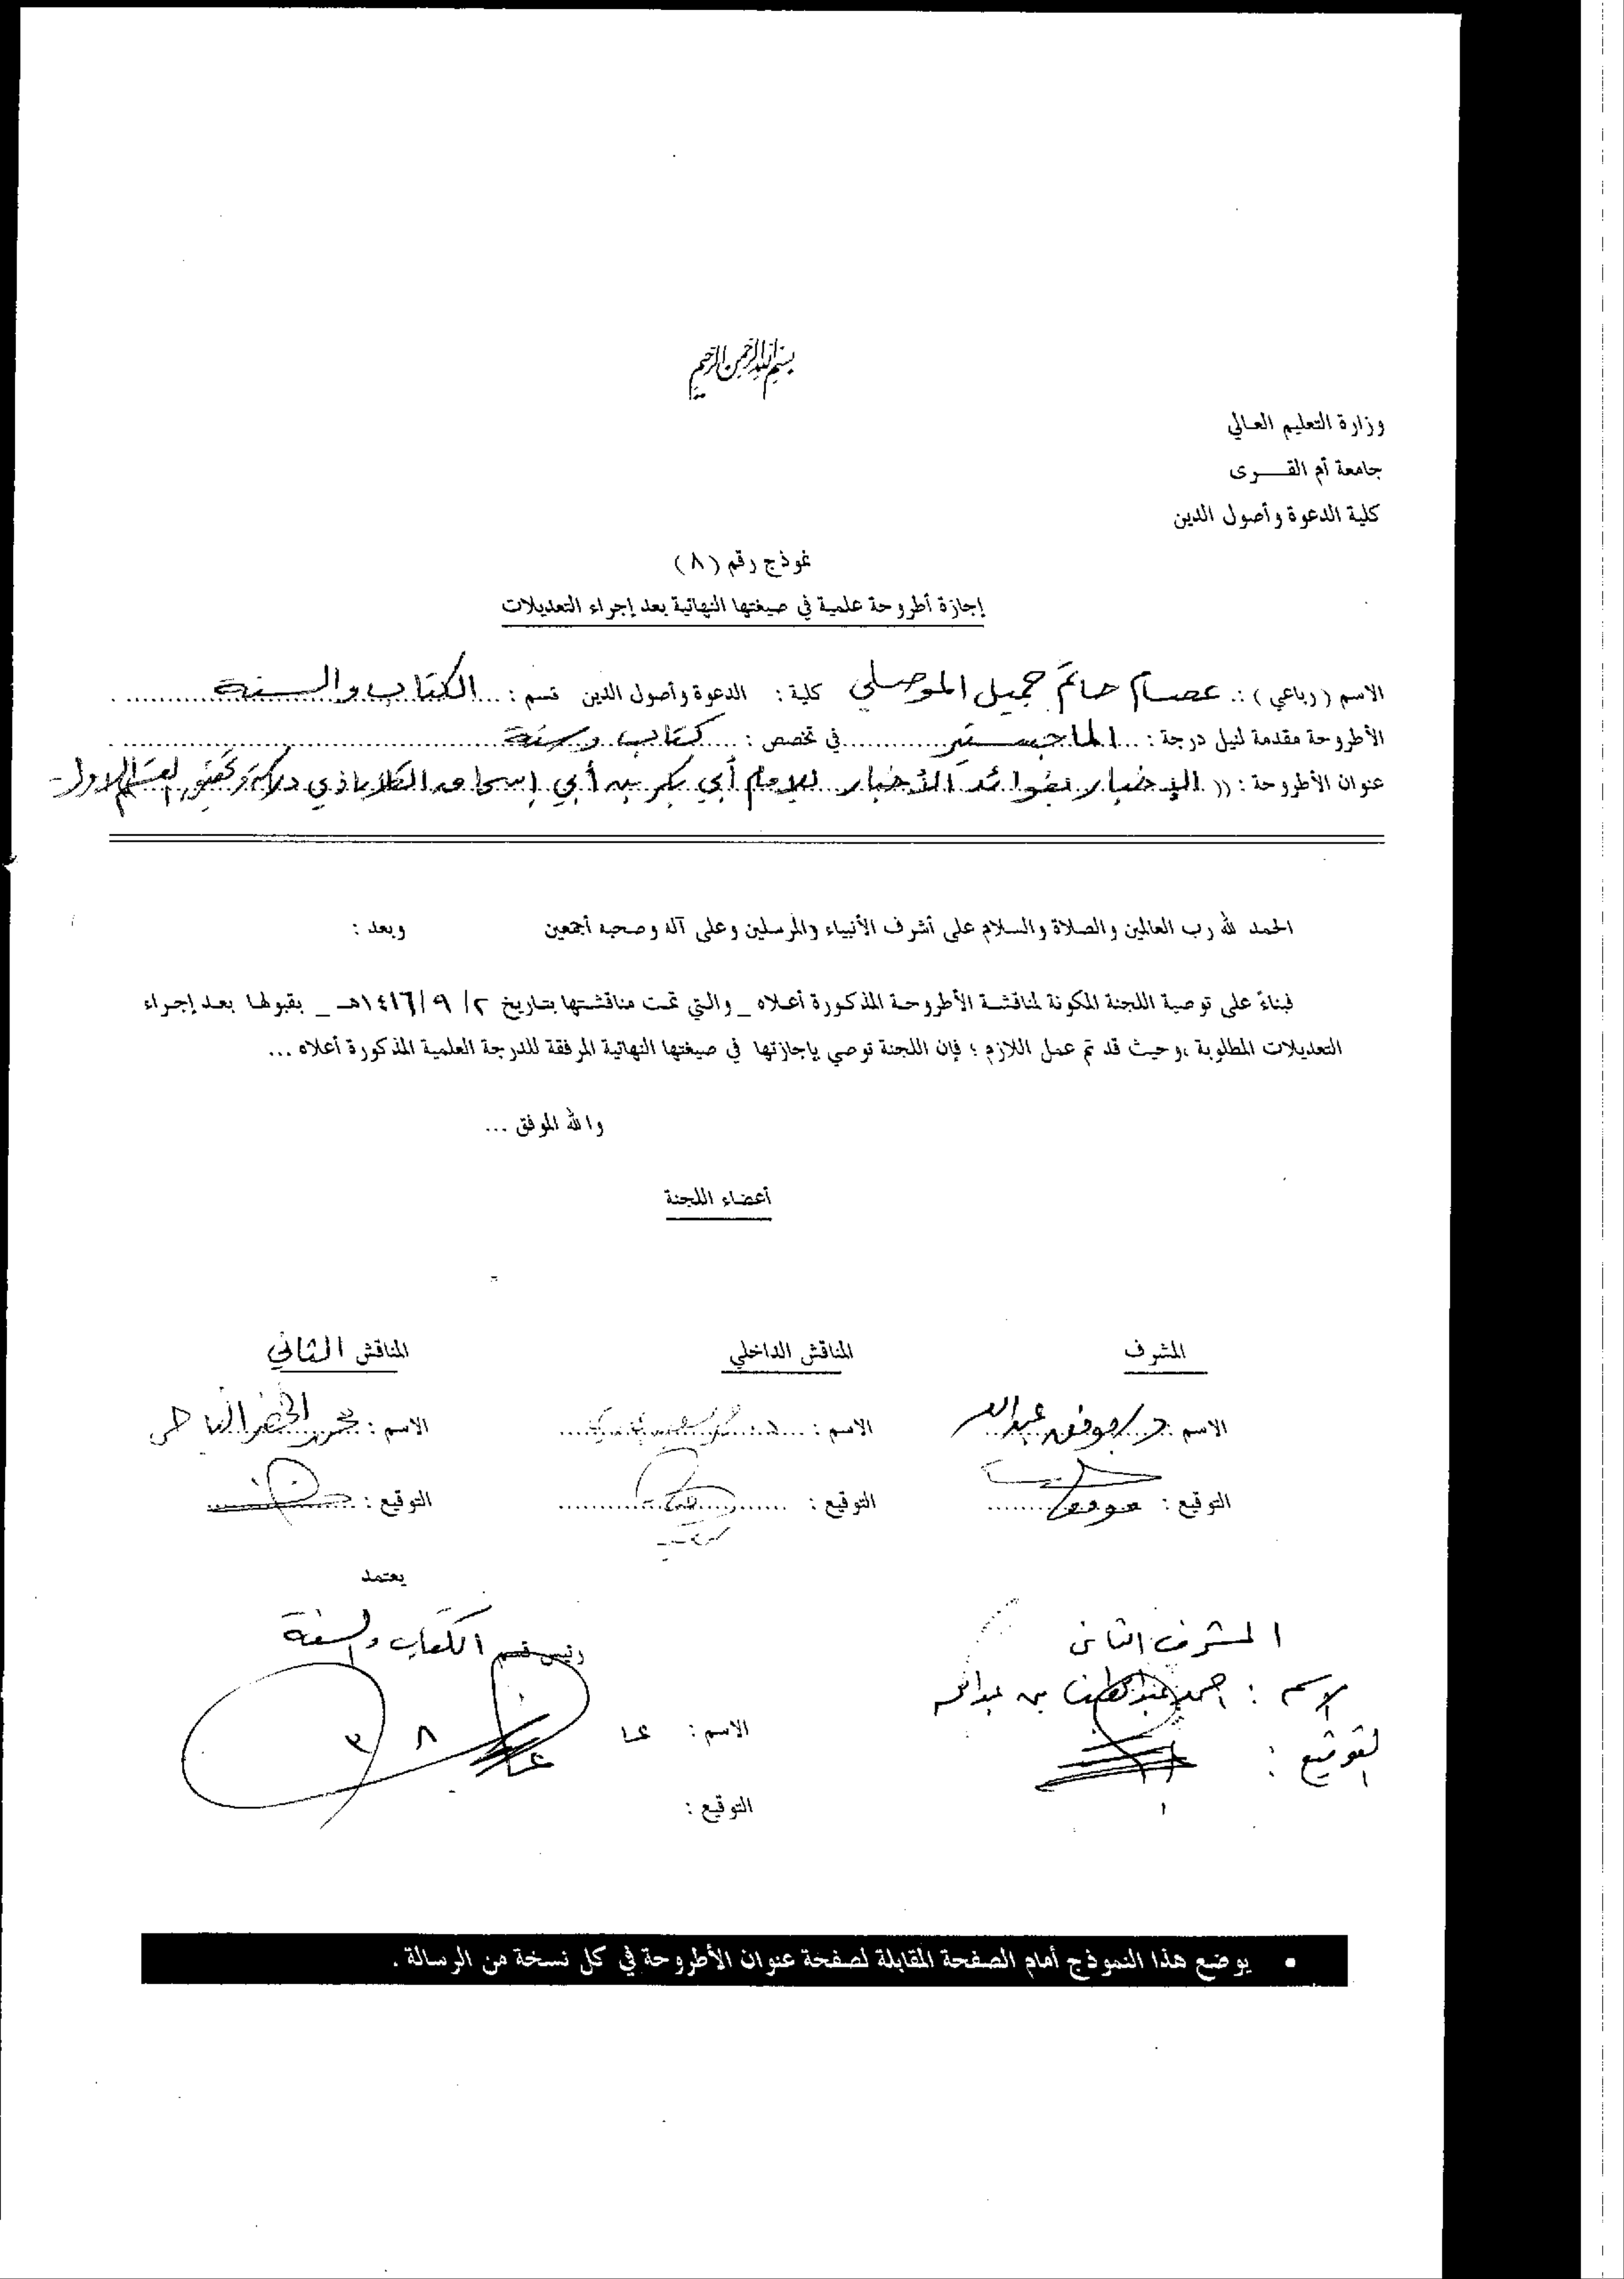 بسم الله الرحمن الرحيم
وزارة التعليم العالي
جامعة أم القــــرى
كلية الدعوة وأصول الدين
نموذج رقم ( ٨ )
إجازة أطروحة علمية في صيغتها النهائية بعد إجراء التعديلات
الاسم ( رباعي ) : عصام حاتم جميل الموصلي كلية : الدعوة وأصول الدين قسم : الكتاب والسنة
الأطروحة مقدمة لنيل درجة : الماجستير في تخصص : كتاب وسنة
عنوان الأطروحة : (( الإخبار بفوائد الأخبار للإمام أبي بكر بن أبي إسحاق الكلاباذي دراسة وتحقيق القسم الأول -
الحمد لله رب العالمين والصلاة والسلام على أشرف الأنبياء والمرسلين وعلى آله وصحبه أجمعين وبعد :
فبناءً على توصية اللجنة المكونة لمناقشة الأطروحة المذكورة أعلاه _ والتي تمت مناقشتها بتاريخ ٢/ ٩ /١٤١٦هـ _ بقبولها بعد إجراء
التعديلات المطلوبة ،وحيث قد تم عمل اللازم ؛ فإن اللجنة توصي بإجازتها في صيغتها النهائية المرفقة للدرجة العلمية المذكورة أعلاه ...
والله الموفق ...
أعضاء اللجنة
المشرف المناقش الداخلي المناقش الثاني
الاسم : د/ موفق عبدالله الاسم : الاسم : الخضر
التوقيع : موفق التوقيع : التوقيع :
يعتمد
المشرف الثاني رئيس قسم الكتاب والسنة
الاسم : احمد عبد بن عبدالله الاسم :
التوقيع : التوقيع :
• يوضع هذا النموذج أمام الصفحة المقابلة لصفحة عنوان الأطروحة في كل نسخة من الرسالة .